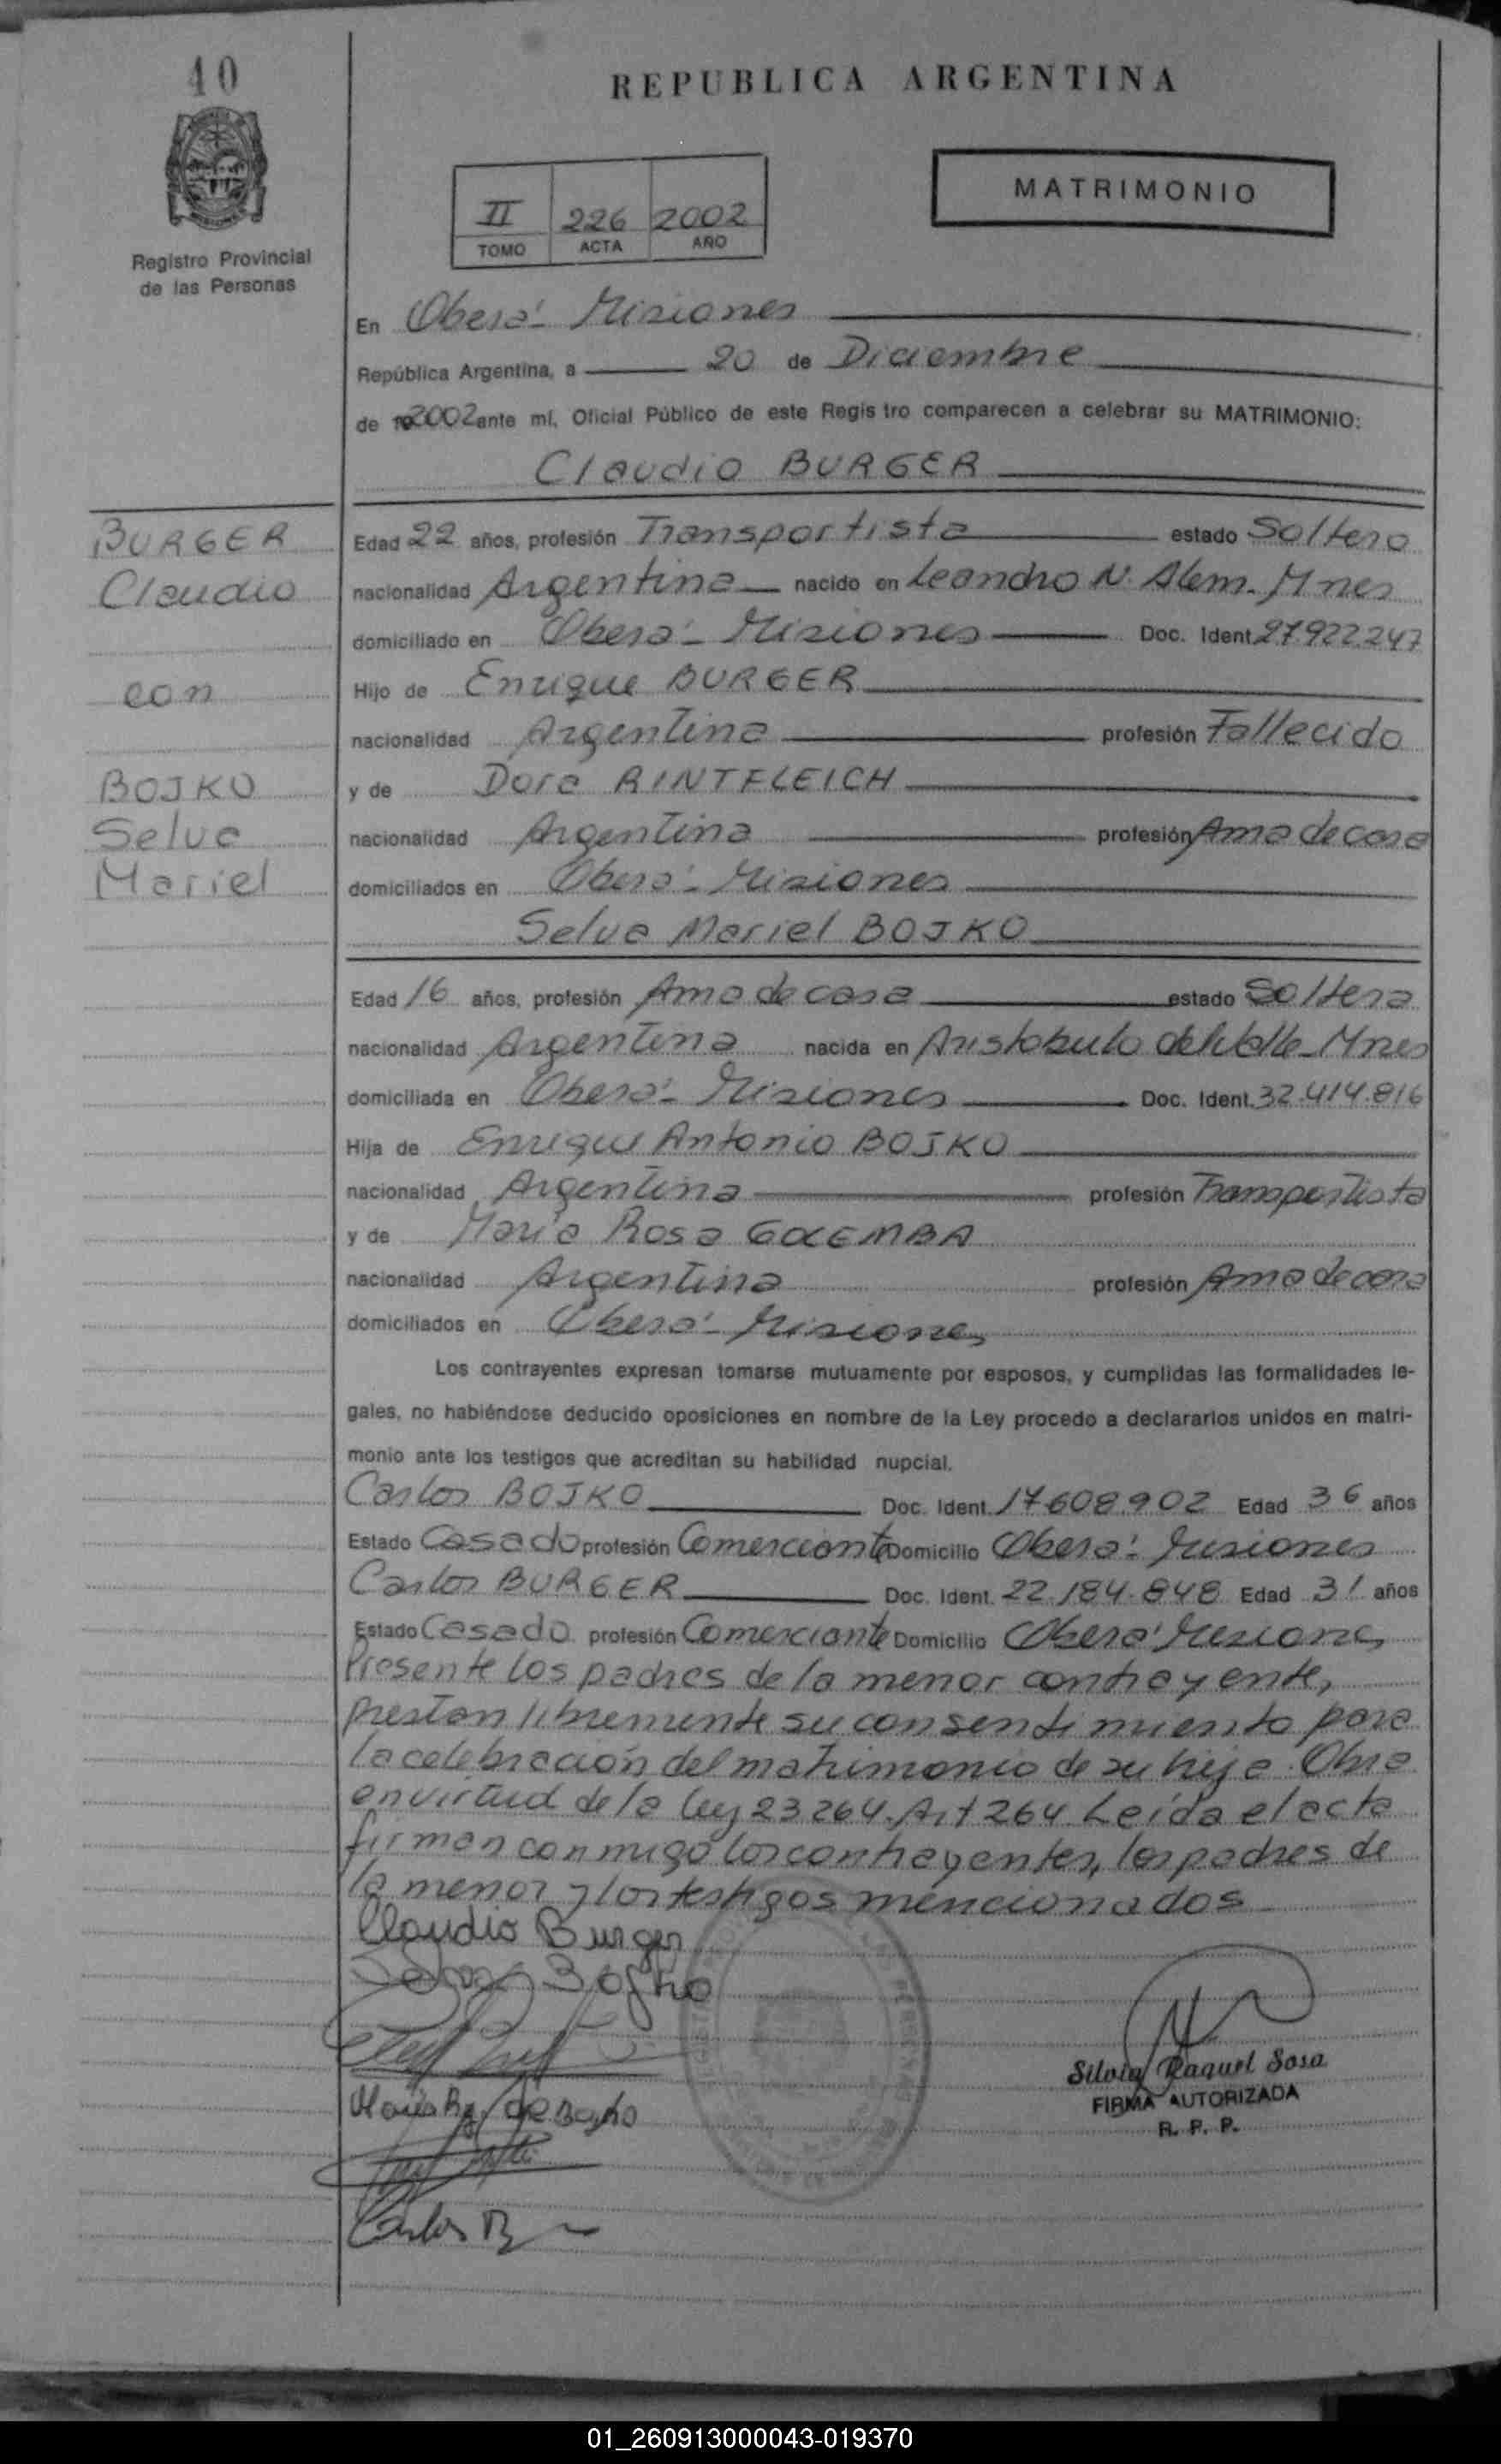 40
REPUBLICA ARGENTINA
MATRIMONIO
II 226 2002
TOMO ACTA AÑO
Registro Provincial
de las Personas
En Oberá - Misiones
República Argentina, a 20 de Diciembre
de 2002 ante mí, Oficial Público de este Registro comparecen a celebrar su MATRIMONIO:
Claudio BURGER
BURGER
Claudio
con
BOJKO
Selva
Mariel
Edad 22 años, profesión Transportista estado Soltero
nacionalidad Argentina nacido en Leandro N. Alem - Mnes
domiciliado en Oberá - Misiones Doc. Ident. 27.922.247
Hijo de Enrique BURGER
nacionalidad Argentina profesión Fallecido
y de Dora RINTFLEICH
nacionalidad Argentina profesión Ama de casa
domiciliados en Oberá - Misiones
Selva Mariel BOJKO
Edad 16 años, profesión Ama de casa estado Soltera
nacionalidad Argentina nacida en Aristobulo del Valle - Mnes
domiciliada en Oberá - Misiones Doc. Ident. 32.414.816
Hija de Enrique Antonio BOJKO
nacionalidad Argentina profesión Transportista
y de María Rosa GOLEMBA
nacionalidad Argentina profesión Ama de casa
domiciliados en Oberá - Misiones
Los contrayentes expresan tomarse mutuamente por esposos, y cumplidas las formalidades le-
gales, no habiéndose deducido oposiciones en nombre de la Ley procedo a declararlos unidos en matri-
monio ante los testigos que acreditan su habilidad nupcial.
Carlos BOJKO Doc. Ident. 17.608.902 Edad 36 años
Estado Casado profesión Comerciante Domicilio Oberá - Misiones
Carlos BURGER Doc. Ident. 22.184.848 Edad 31 años
Estado Casado profesión Comerciante Domicilio Oberá Misiones
Presente los padres de la menor contrayente,
prestan libremente su consentimiento para
la celebración del matrimonio de su hija. Obra
en virtud de la ley 23264. Art 264. Leída el acta
firman conmigo los contrayentes, los padres de
la menor y los testigos mencionados
Claudio Burger
Selva Bojko
Silvia Raquel Sosa
FIRMA AUTORIZADA
R. P. P.
de Bojko
Carlos B
01_260913000043-019370